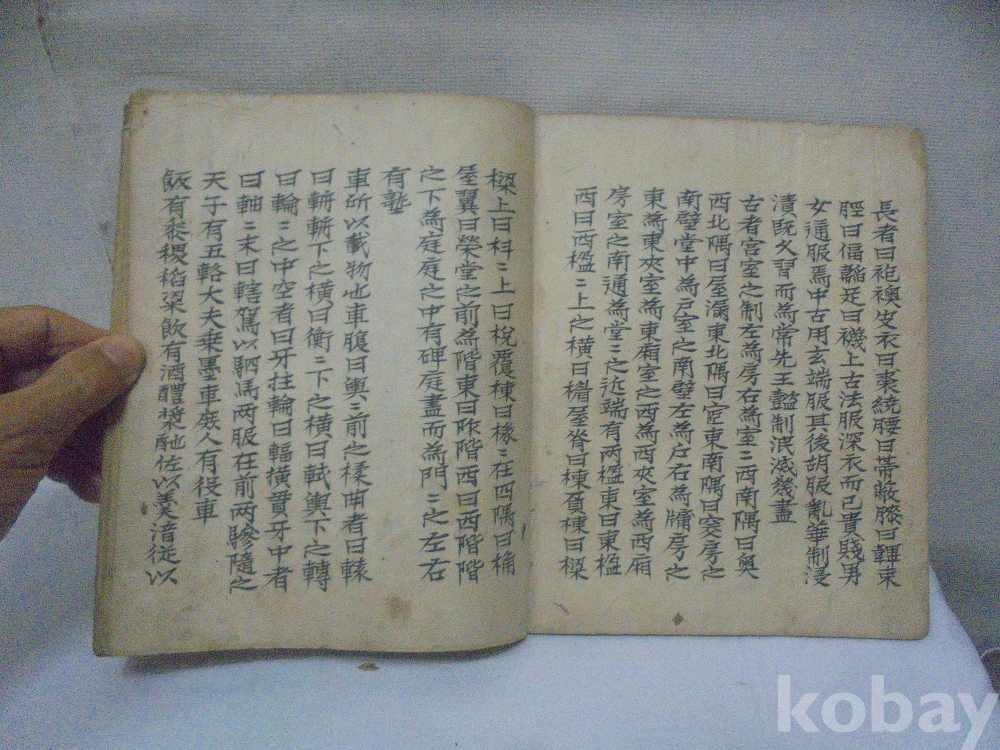 長者曰袍襖皮衣曰裘繞腰曰帶蔽膝曰韠束
脛曰偪韜足曰襪上古法服深衣而已貴賤男
女通服焉中古用玄端服耳後胡服亂華制浸
漬旣久習而爲常先王懿制泯滅幾盡
古者宮室之制左爲房右爲室二西南隅曰奧
西北隅曰屋漏東北隅曰宧東南隅曰窔房之
南壁堂中爲戶室之南壁左爲戶右爲牖房之
東爲東夾室爲東廂室之西爲西夾室爲西廂
房室之南通爲堂二之近端有兩楹東曰東楹
西曰西楹二上之橫曰楣屋脊曰棟負棟曰樑
樑上曰枓二上曰梲覆棟曰椽二在四隅曰桷
屋翼曰榮堂之前爲階東曰阼階西曰西階階
之下爲庭庭之中有碑庭盡而爲門二之左右
有塾
車所以載物也車腹曰輿二前之楺曲者曰轅
曰輧輧下之橫曰衡二下之橫曰軾輿下之轉
曰輪二之中空者曰牙拄輪曰輻橫貫牙中者
曰軸二末曰轄駕以駟馬两服在前两驂隨之
天子有五輅大夫乘墨車庭人有役車
飯有黍稷稻粱飮有酒醴漿酏佐以羹湆從以
kobay